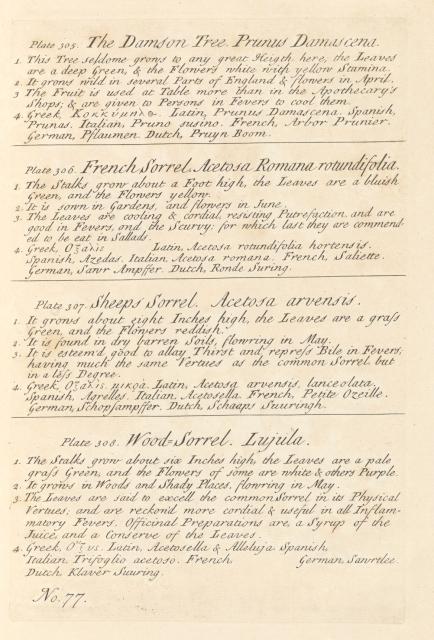 Plate 305. The Damson Tree. Prunus Damascena.
1. This Tree seldome grows to any great Heigth here, the Leaves
are a deep Green, & the Flowers white with yellow Stamina.
2. It grows wild in several Parts of England & flowers in April.
3 The Fruit is used at Table more than in the Apothecary's
Shops; & are given to Persons in Fevers to cool them.
4. Greek, Latin, Prunus Damascena. Spanish,
Prunas. Italian, Pruno susino. French, Arbor Prunier.
German, Pflaumen. Dutch, Pruyn Boom.
Plate 306. French Sorrel. Acetosa Romana rotundifolia.
1. The Stalks grow about a Foot high, the Leaves are a bluish
Green, and the Flowers yellow.
2. It is sown in Gardens, and flowers in June.
3. The Leaves are cooling & cordial, resisting Putrefaction, and are
good in Fevers, and the Scurvy; for which last they are commend-
ed to be eat in Sallads.
4. Greek, Οξαλις Latin, Acetosa rotundifolia hortensis.
Spanish, Azedas. Italian, Acetosa romana. French, Saliette.
German, Sawr Ampffer. Dutch, Ronde Suring.
Plate 307. Sheeps Sorrel. Acetosa arvensis.
1. It grows about eight Inches high, the Leaves are a grass
Green, and the Flowers reddish.
2. It is found in dry barren Soils, flowring in May.
3. It is esteem'd good to allay Thirst and repress Bile in Fevers,
having much the same Vertues as the common Sorrel, but
in a less Degree.
4. Greek, Οξαλις μικρα. Latin, Acetosa arvensis, lanceolata.
Spanish, Agrelles. Italian, Acetosella. French, Petite Ozeille.
German, Schopfampffer. Dutch, Schaaps Suuringh.
Plate 308. Wood-Sorrel. Lujula.
1. The Stalks grow about six Inches high, the Leaves are a pale
grass Green, and the Flowers of some are white & others Purple.
2. It grows in Woods and Shady Places, flowring in May.
3. The Leaves are said to excell the common Sorrel in its Physical
Vertues; and are reckon'd more cordial & useful in all Inflam-
matory Fevers. Officinal Preparations are, a Syrup of the
Juice, and a Conserve of the Leaves.
4. Greek, Latin, Acetosella & Alleluja. Spanish,
Italian, Trifoglio acetoso. French, German, Sawrclee.
Dutch, Klaver Suuring.
No. 77.